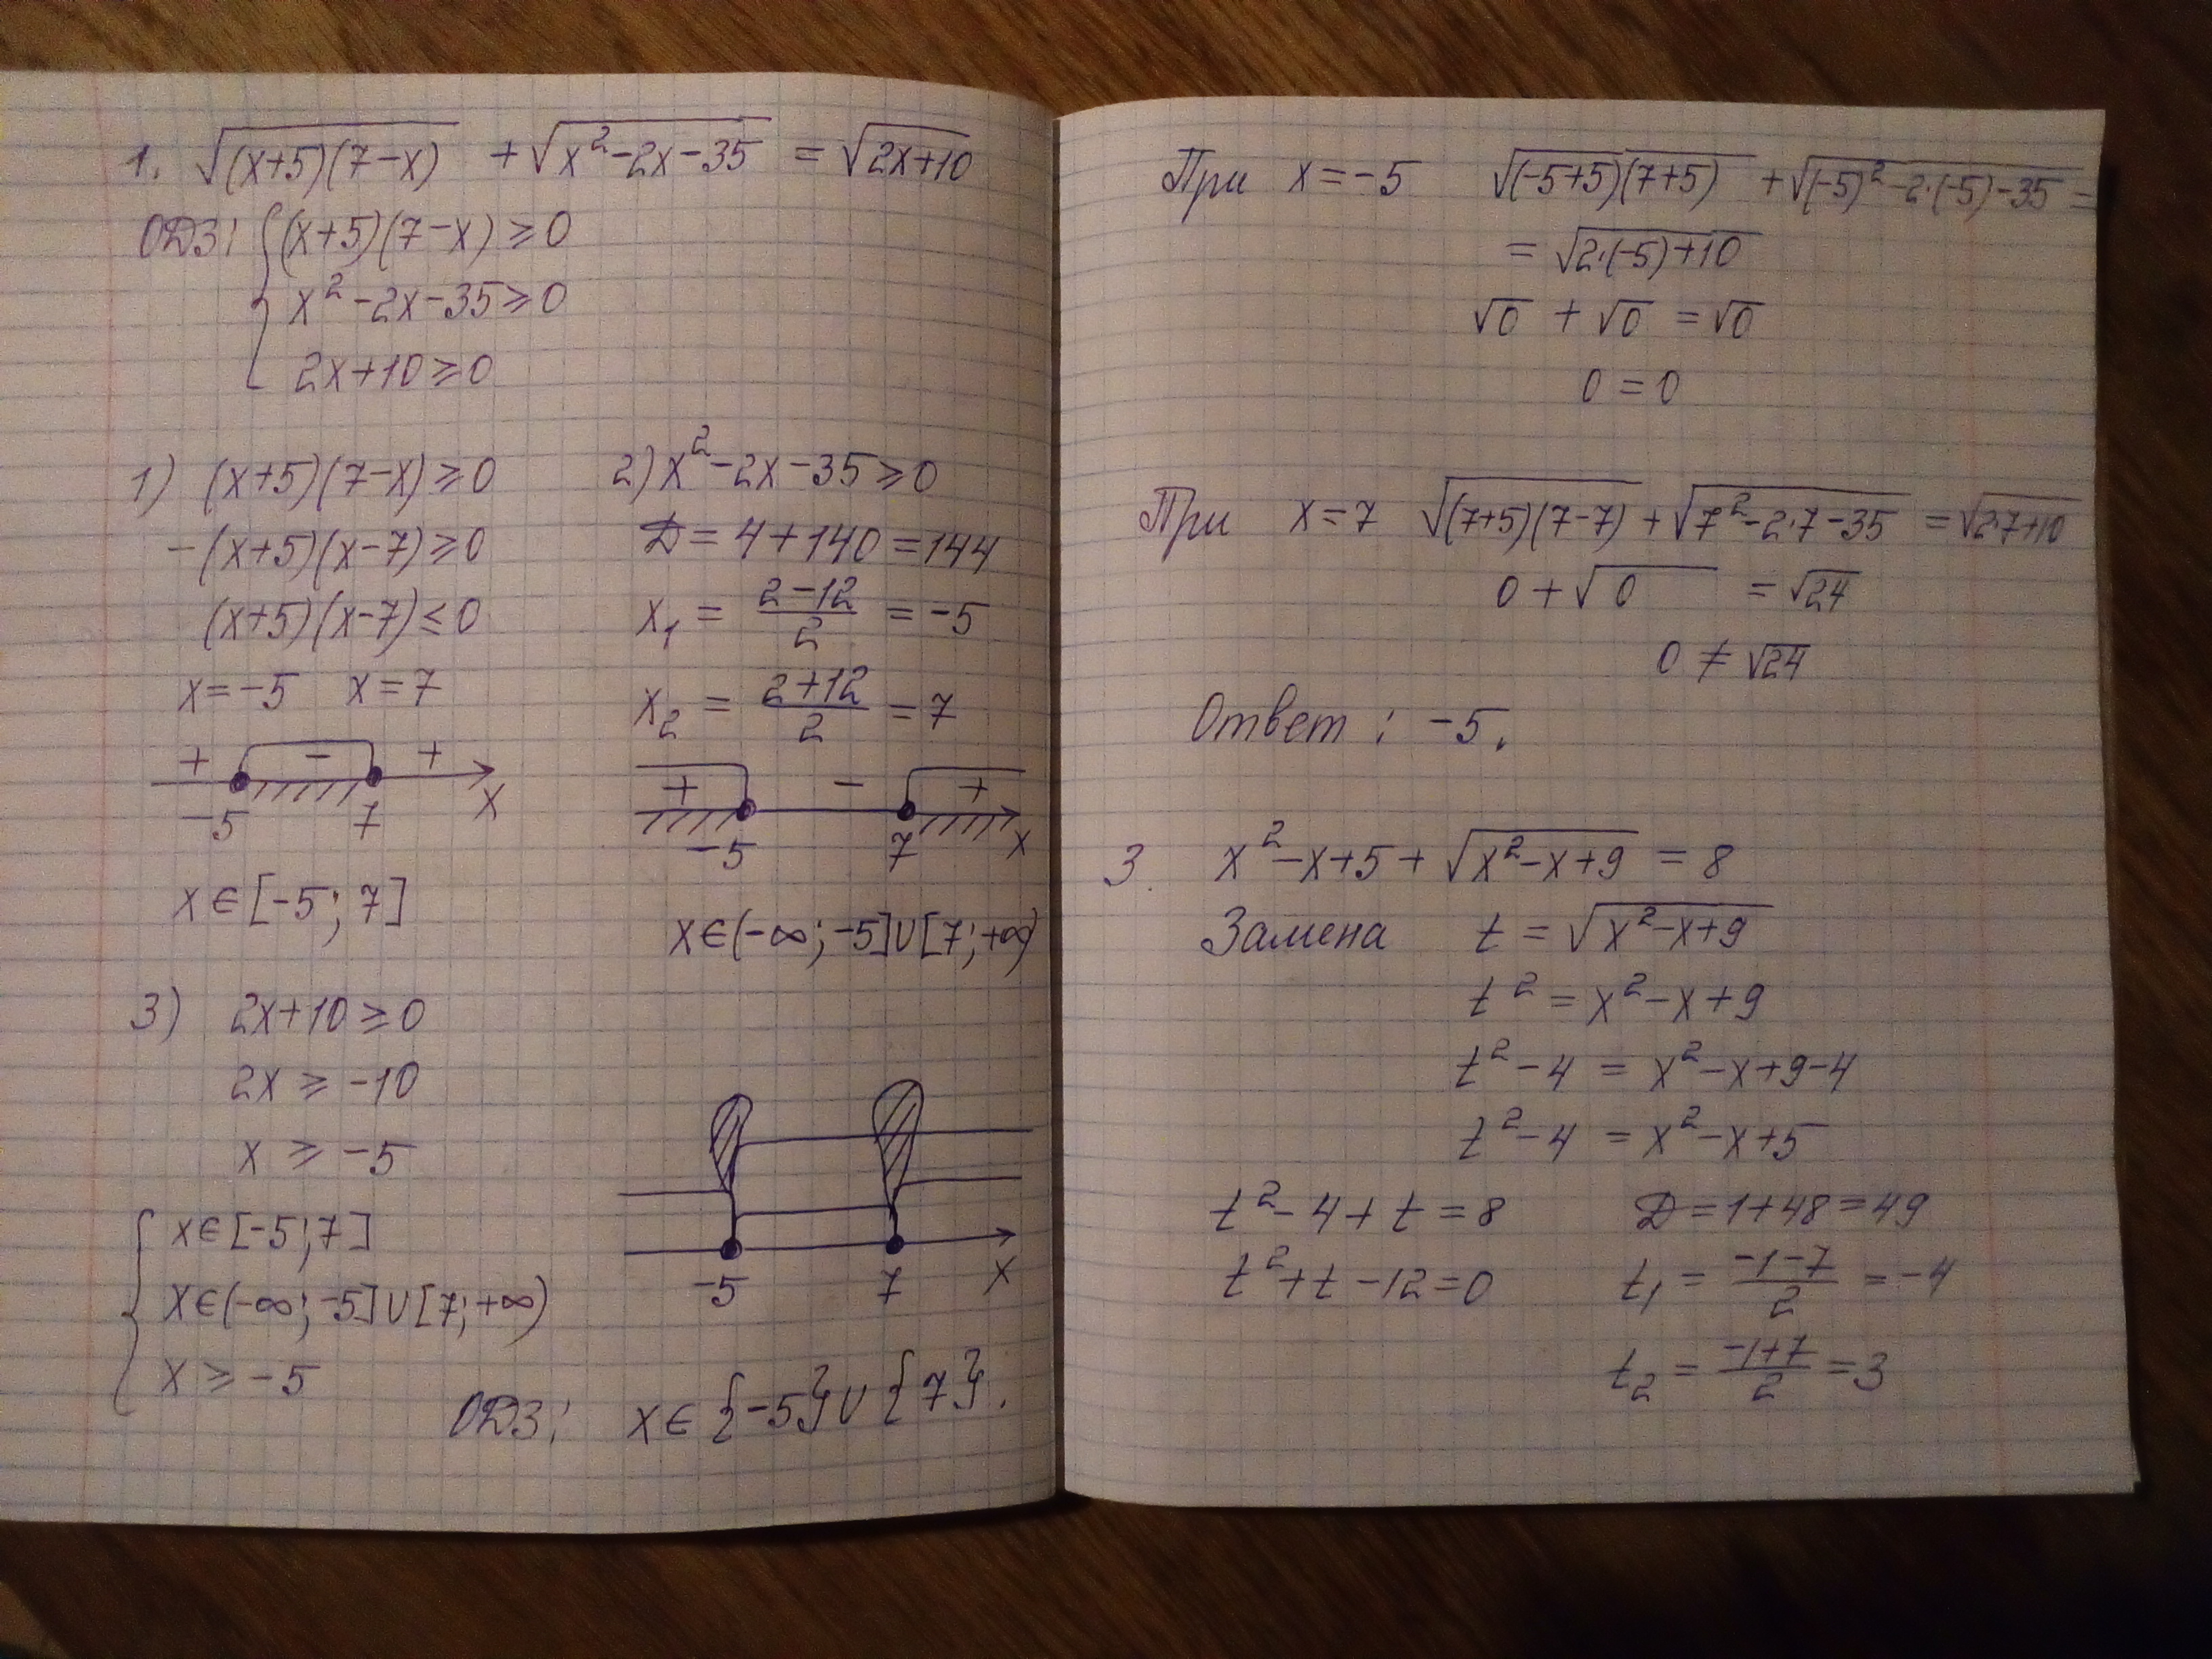 1. √((x+5)(7-x)) + √(x²-2x-35) = √(2x+10)
ОДЗ: { (x+5)(7-x) ≥ 0
x²-2x-35 ≥ 0
2x+10 ≥ 0
1) (x+5)(7-x) ≥ 0
-(x+5)(x-7) ≥ 0
(x+5)(x-7) ≤ 0
x=-5 x=7
+ - +
-5 7 x
x ∈ [-5; 7]
2) x²-2x-35 ≥ 0
D = 4+140 = 144
x₁ = (2-12)/2 = -5
x₂ = (2+12)/2 = 7
+ - +
-5 7 x
x ∈ (-∞; -5] ∪ [7; +∞)
3) 2x+10 ≥ 0
2x ≥ -10
x ≥ -5
{ x ∈ [-5; 7]
x ∈ (-∞; -5] ∪ [7; +∞)
x ≥ -5
-5 7 x
ОДЗ: x ∈ {-5} ∪ {7}.
При x = -5 √((-5+5)(7+5)) + √((-5)²-2·(-5)-35) =
= √(2·(-5)+10)
√0 + √0 = √0
0 = 0
При x = 7 √((7+5)(7-7)) + √(7²-2·7-35) = √(2·7+10)
0 + √0 = √24
0 ≠ √24
Ответ: -5.
3. x²-x+5 + √(x²-x+9) = 8
Замена t = √(x²-x+9)
t² = x²-x+9
t²-4 = x²-x+9-4
t²-4 = x²-x+5
t²-4+t = 8
t²+t-12=0
D = 1+48 = 49
t₁ = (-1-7)/2 = -4
t₂ = (-1+7)/2 = 3